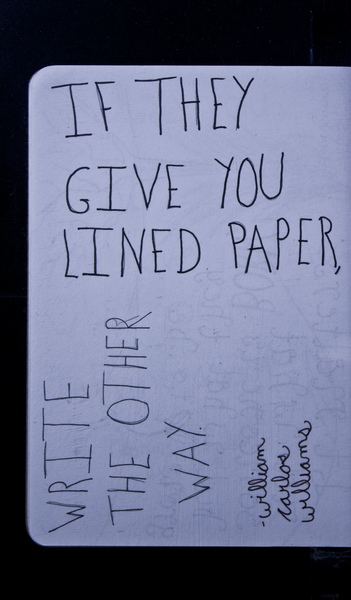 IF THEY
GIVE YOU
LINED PAPER,
WRITE
THE OTHER
WAY.
-william
carlos
williams